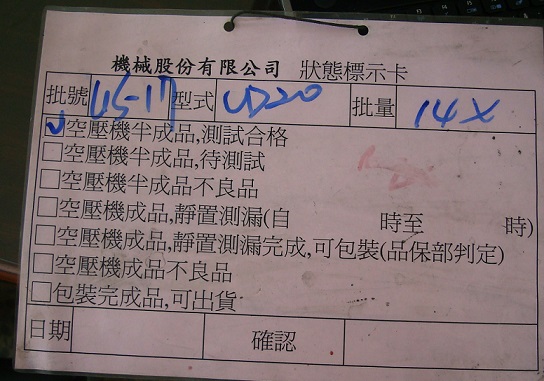 機械股份有限公司 狀態標示卡
批號 US-17 型式 UD20 批量 14X
☑空壓機半成品,測試合格
□空壓機半成品,待測試
□空壓機半成品不良品
□空壓機成品,靜置測漏(自 時至 時)
□空壓機成品,靜置測漏完成,可包裝(品保部判定)
□空壓機成品不良品
□包裝完成品,可出貨
日期 確認